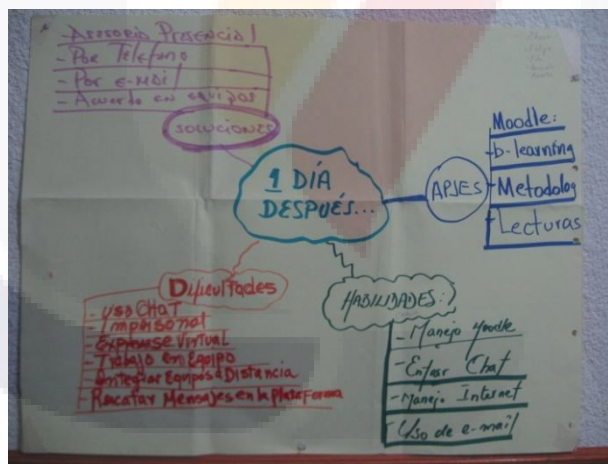 - Asesoria Presencial
- Por Telefono
- Por e-mail
- Acuerdo en equipos
SOLUCIONES
1 DÍA
DESPUÉS...
APJES
Moodle:
-b-learning
-Metodolog
-Lecturas
Dificultades
- USO CHAT
- Impersonal
- Expresarse Virtual
- Trabajo en Equipo
- Integrar Equipos a Distancia
- Rescatar Mensajes en la Plataforma
HABILIDADES:
- Manejo Moodle
- Chat
- Manejo Internet
- Uso de e-mail